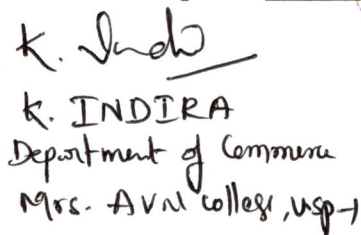 K. Indi
K. INDIRA
Department of Commerce
Mrs. AVN College, VSP-1